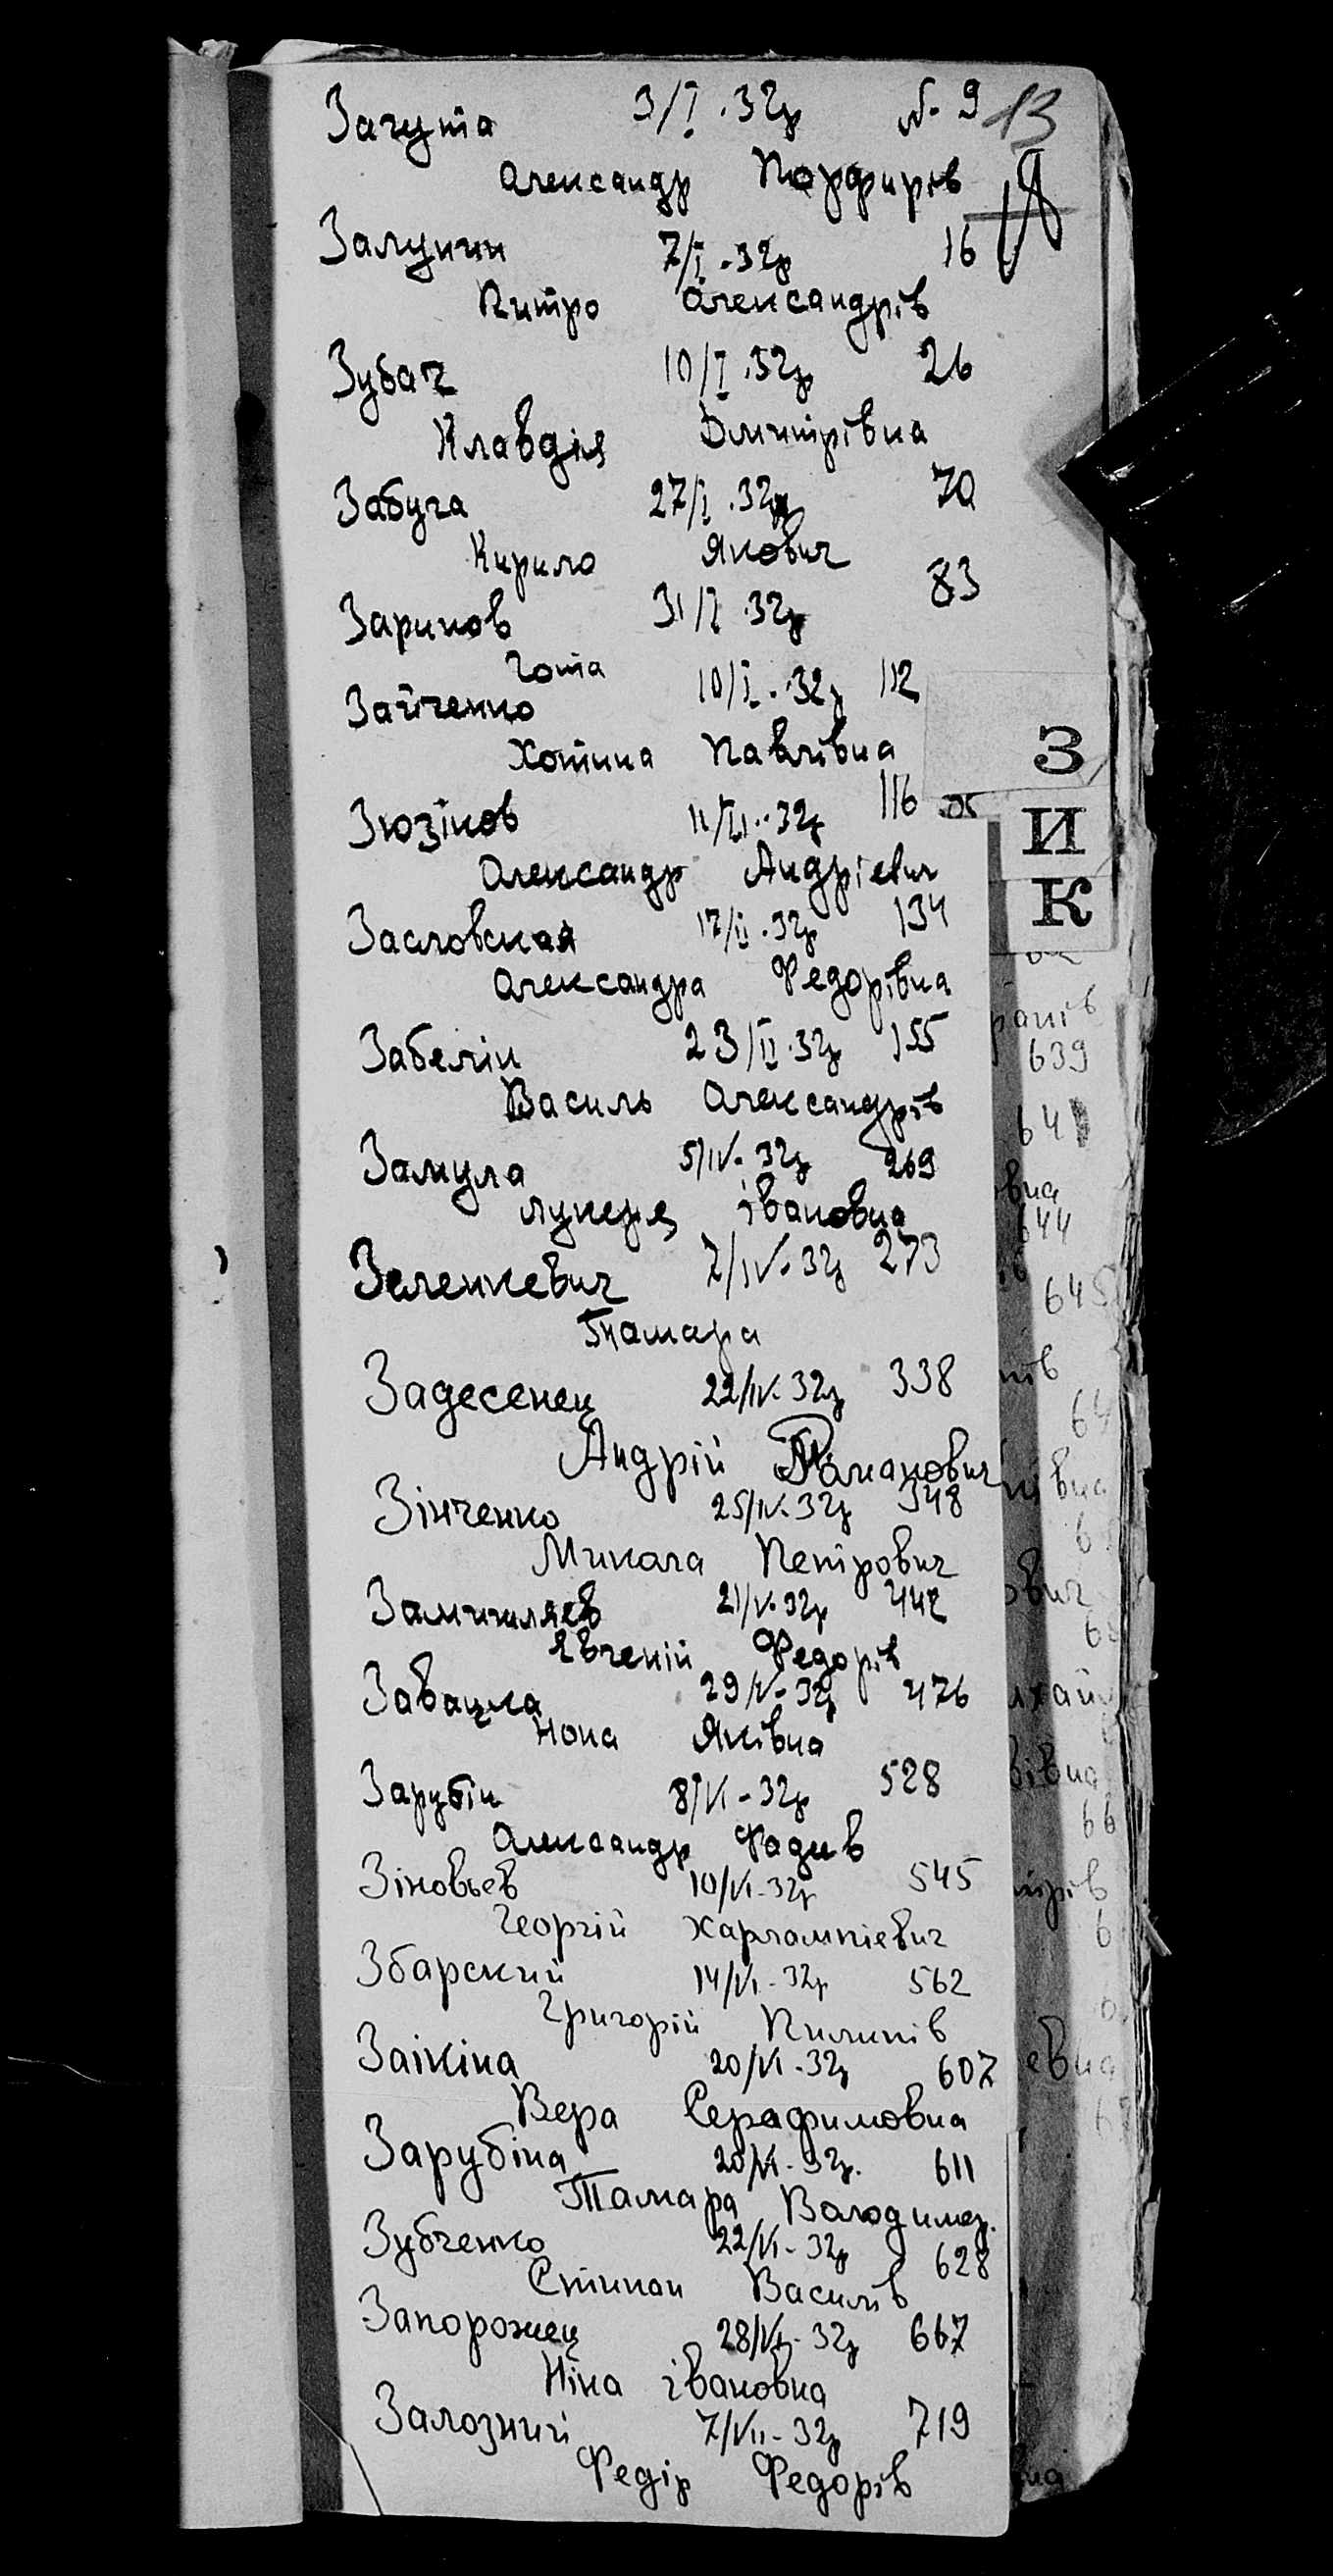 Зачута 3/I.32р № 9 13
Александр Порфирів
Залунин 7/I.32р 16
Питро Александрів
Зубач 10/I.32р 26
Клавдія Дмитрівна
Забуга 27/I.32р 70
Кирило Якович
Зарипов 31/I.32р 83
Гота
Зайченко 10/I.32р 112
Хотина Павлівна
Зюзіков 11/II.32р 116
З
И
К
Олександр Андрієвич
Засловская 17/II.32р 134
Александра Федорівна
Забелін 23/II.32р 155
Василь Александрів
639
Замула 5/IV.32р 269
641
Лукеря івановна
644
Зеленкевич 7/IV.32р 273
645
Тамара
Задесенец 22/IV.32р 338
Андрій Романович
Зінченко 25/IV.32р 348
Микола Петрович
Замишляєв 21/V.32р 442
Євгеній Федорів
Забацка 29/V-32р 476
Нона Яківна
Зарубін 8/VI-32р 528
Александр Фадиів
Зіновьев 10/VI-32р 545
Георгій Харлампієвич
Збарский 14/VI-32р 562
Григорій Пилипів
Заікіна 20/VI-32р 607
Вера Серафимовна
Зарубіна 20/VI-32р. 611
Тамара Володимер.
Зубченко 22/VI-32р 628
Степан Василів
Запорожец 28/VI-32р 667
Ніна івановна
Залозний 7/VII-32р 719
Федір Федорів